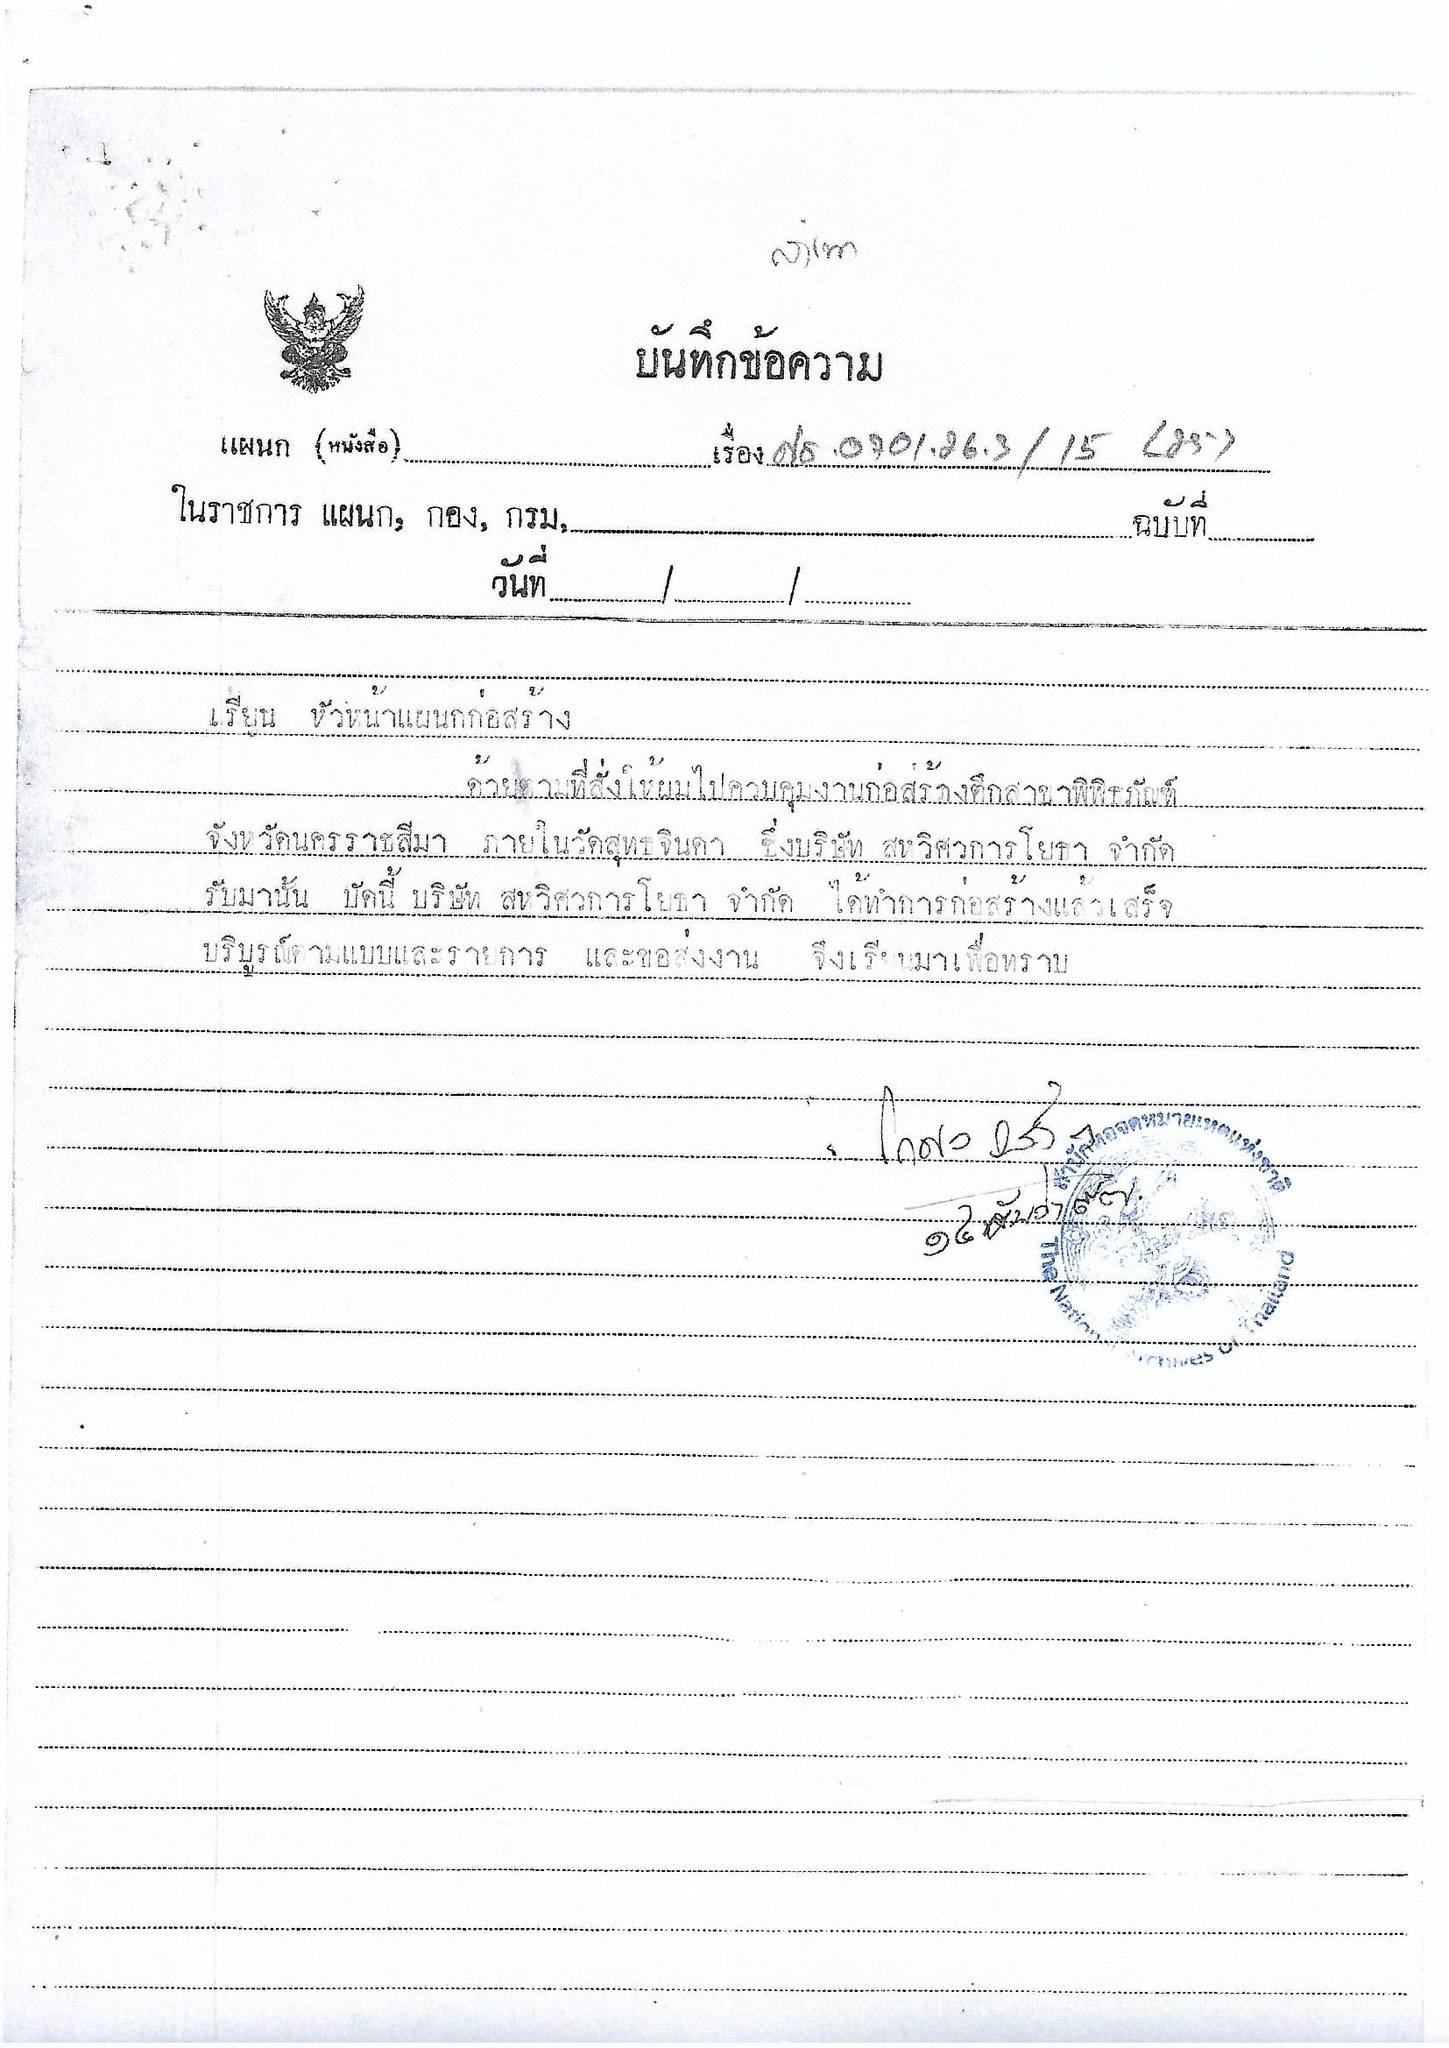 สำเนา
บันทึกข้อความ
แผนก (หนังสือ) เรื่อง ศธ.0701.26.3/15
ในราชการ แผนก, กอง, กรม, ฉบับที่
วันที่ / /
เรียน หัวหน้าแผนกก่อสร้าง
ด้วยตามที่สั่งให้ผมไปควบคุมงานก่อสร้างตึกสาขาพิพิธภัณฑ์
จังหวัดนครราชสีมา ภายในวัดสุทธจินดา ซึ่งบริษัท สหวิศวการโยธา จำกัด
รับมานั้น บัดนี้ บริษัท สหวิศวการโยธา จำกัด ได้ทำการก่อสร้างแล้วเสร็จ
บริบูรณ์ตามแบบและรายการ และขอส่งงาน จึงเรียนมาเพื่อทราบ
สำนักหอจดหมายเหตุแห่งชาติ
The National Archives of Thailand